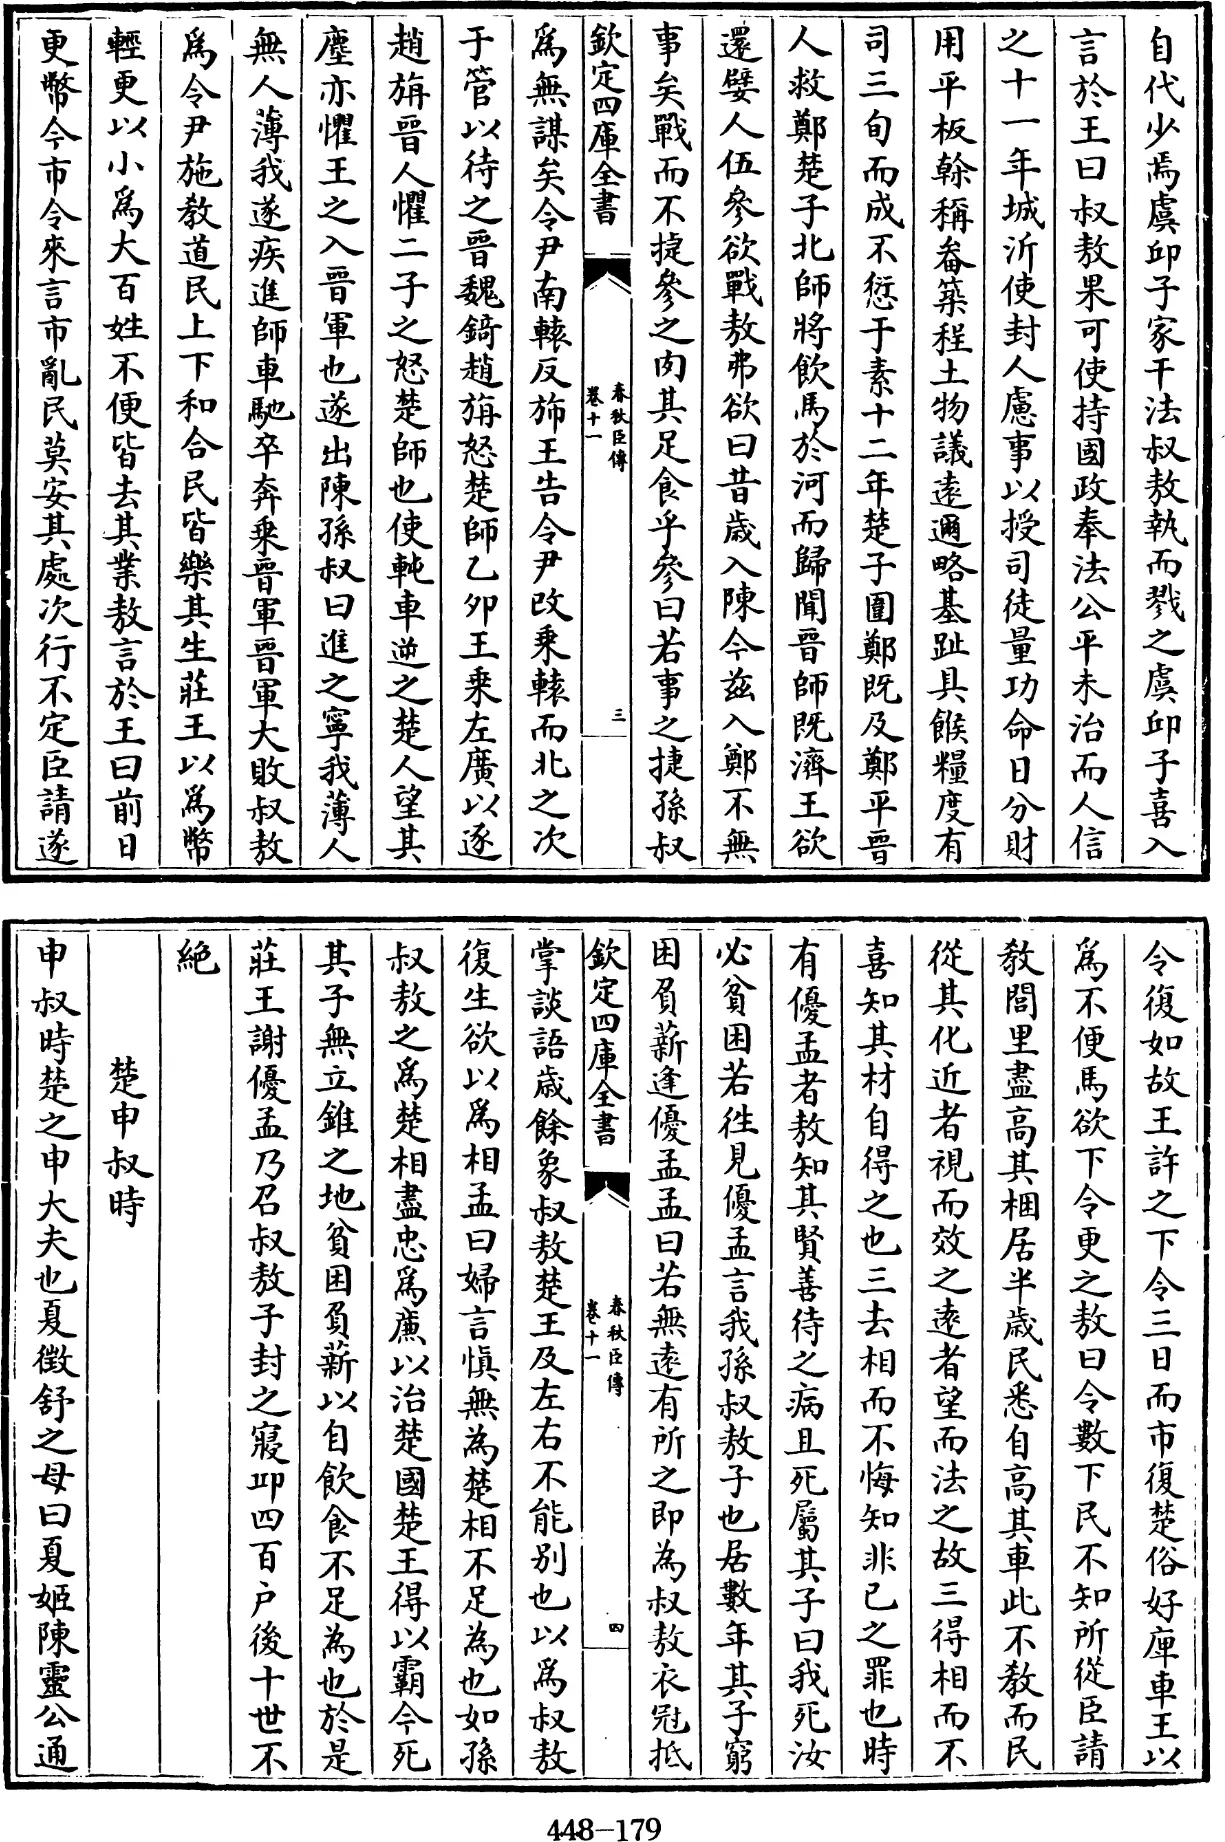 自代少焉虞邱子家干法叔敖執而戮之虞邱子喜入
言於王曰叔敖果可使持國政奉法公平未治而人信
之十一年城沂使封人慮事以授司徒量功命日分財
用平板榦稱畚築程土物議逺邇略基趾具餱糧度有
司三旬而成不愆于素十二年楚子圍鄭既及鄭平晉
人救鄭楚子北師將飲馬於河而歸聞晉師既濟王欲
還嬖人伍參欲戰敖弗欲曰昔歲入陳今兹入鄭不無
事矣戰而不捷參之肉其足食乎參曰若事之捷孫叔
欽定四庫全書
春秋臣傳
卷十一
三
為無謀矣令尹南轅反斾王告令尹改乗轅而北之次
于管以待之晉魏錡趙旃怒楚師乙夘王乗左廣以逐
趙旃晉人懼二子之怒楚師也使軘車逆之楚人望其
塵亦懼王之入晉軍也遂出陳孫叔曰進之寧我薄人
無人薄我遂疾進師車馳卒奔乗晉軍晉軍大敗叔敖
為令尹施教道民上下和合民皆樂其生莊王以為幣
輕更以小為大百姓不便皆去其業敖言於王曰前日
更幣今市令來言市亂民莫安其處次行不定臣請遂
令復如故王許之下令三日而市復楚俗好庳車王以
為不便馬欲下令更之敖曰令數下民不知所從臣請
敎閭里盡高其梱居半歲民悉自高其車此不教而民
從其化近者視而效之逺者望而法之故三得相而不
喜知其材自得之也三去相而不悔知非已之罪也時
有優孟者敖知其賢善待之病且死屬其子曰我死汝
必貧困若往見優孟言我孫叔敖子也居數年其子窮
困負薪逢優孟孟曰若無逺有所之即為叔敖衣冠抵
欽定四庫全書
春秋臣傳
卷十一
四
掌談語歲餘象叔敖楚王及左右不能别也以為叔敖
復生欲以為相孟曰婦言慎無為楚相不足為也如孫
叔敖之為楚相盡忠為廉以治楚國楚王得以霸今死
其子無立錐之地貧困負薪以自飲食不足為也於是
莊王謝優孟乃召叔敖子封之寢邱四百戶後十世不
絶
楚申叔時
申叔時楚之申大夫也夏徵舒之母曰夏姬陳靈公通
448-179